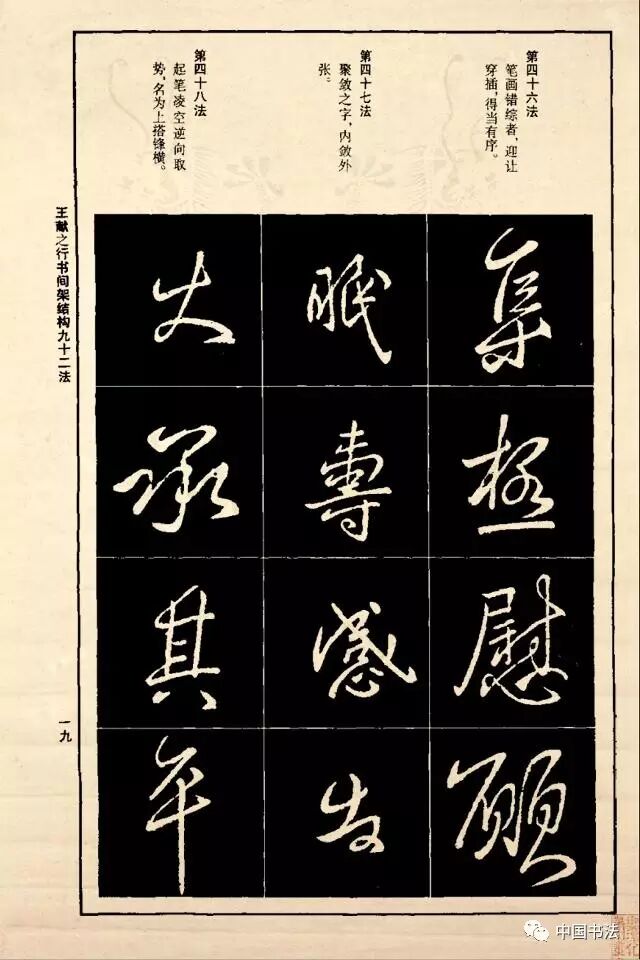 第四十六法
笔画错综者，迎让
穿插，得当有序。
集極慰願
第四十七法
聚敛之字，内敛外
张。
眠專感
第四十八法
起笔凌空逆向取
势，名为上搭锋横。
承其平
王献之行书间架结构九十二法
一九
中国书法